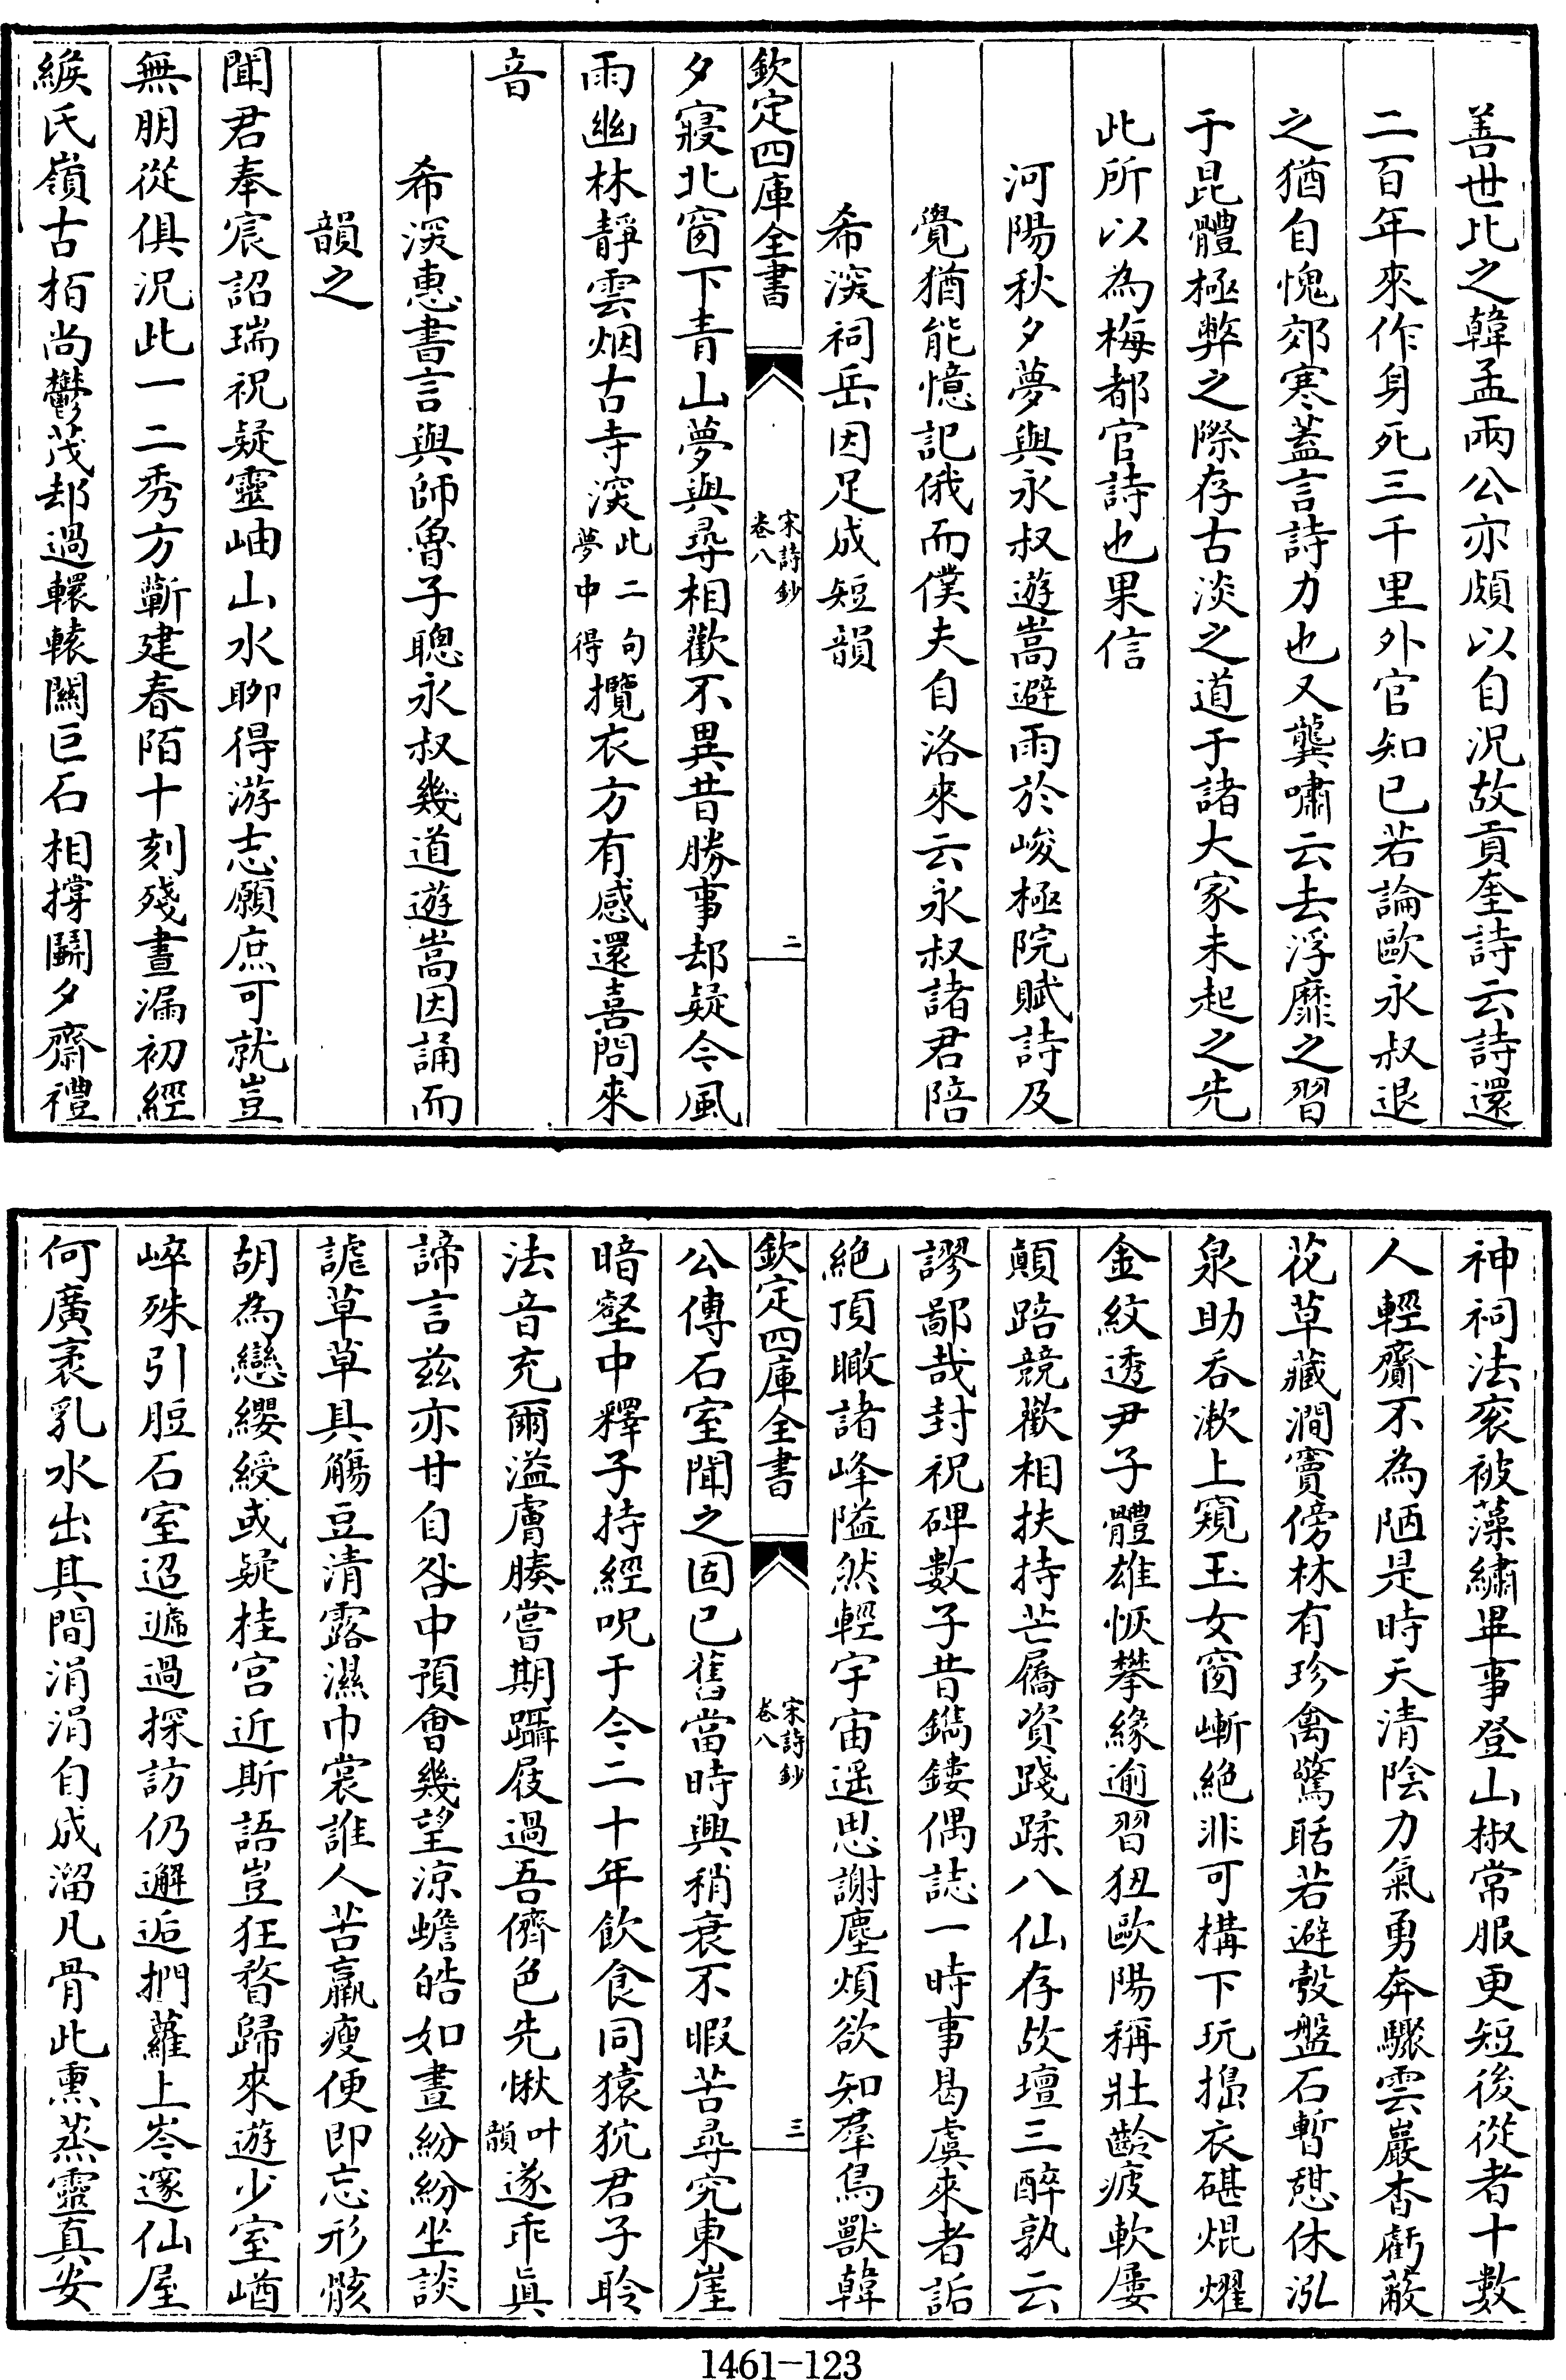 善世比之韓孟兩公亦頗以自況故貢奎詩云詩還
二百年來作身死三千里外官知已若論歐永叔退
之猶自愧郊寒蓋言詩力也又龔嘯云去浮靡之習
于昆體極弊之際存古淡之道于諸大家未起之先
此所以為梅都官詩也果信
河陽秋夕夢與永叔遊嵩避雨於峻極院賦詩及
覺猶能憶記俄而僕夫自洛來云永叔諸君陪
希深祠岳因足成短韻
欽定四庫全書
宋詩鈔
卷八
二
夕寢北窗下青山夢與尋相歡不異昔勝事却疑今風
雨幽林靜雲烟古寺深此二句夢中得攬衣方有感還喜問來
音
希深惠書言與師魯子聰永叔幾道遊嵩因誦而
韻之
聞君奉宸詔瑞祝疑靈岫山水聊得游志願庶可就豈
無朋從俱況此一二秀方蘄建春陌十刻殘晝漏初經
緱氏嶺古栢尚鬱茂却過轘轅關巨石相撐鬭夕齋禮
神祠法衮被藻繡畢事登山椒常服更短後從者十數
人輕齎不為陋是時天清陰力氣勇奔驟雲巖杳虧蔽
花草藏澗竇傍林有珍禽驚聒若避彀盤石暫憩休泓
泉助吞漱上窺玉女窗嶄絶非可構下玩搗衣碪焜燿
金紋透尹子體雄恢攀緣逾習狃歐陽稱壯齡疲軟屢
顛踣競歡相扶持芒屩資踐蹂八仙存故壇三醉孰云
謬鄙哉封祝碑數子昔鐫鏤偶誌一時事曷虞來者詬
絶頂瞰諸峰隘然輕宇宙遥思謝塵煩欲知羣鳥獸韓
欽定四庫全書
宋詩鈔
卷八
三
公傳石室聞之固已舊當時興稍衰不暇苦尋究東崖
暗壑中釋子持經呪于今二十年飲食同猿狖君子聆
法音充爾溢膚腠嘗期躡屐過吾儕色先愀叶韻遂乖真
諦言兹亦甘自咎中預會幾望涼蟾皓如晝紛紛坐談
謔草草具觴豆清露濕巾裳誰人苦羸瘦便即忘形骸
胡為戀纓綬或疑桂宮近斯語豈狂瞀歸來遊少室崷
崪殊引脰石室迢遞過探訪仍邂逅捫蘿上岑邃仙屋
何廣袤乳水出其間涓涓自成溜凡骨此熏蒸靈真安
1461—123